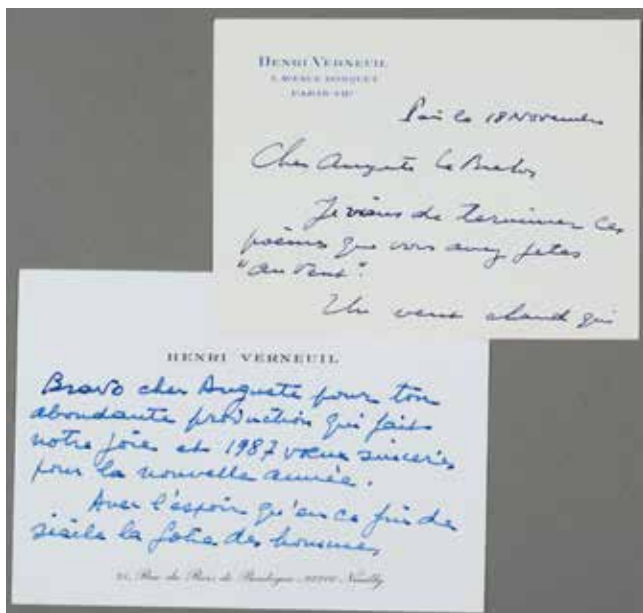 HENRI VERNEUIL
AVENUE BOSQUET
PARIS VIIᵉ
Paris le 18 Novembre
Cher Auguste Le Breton
Je viens de terminer ces
poèmes que vous avez jetés
"au vent".
Un vent chaud qui
HENRI VERNEUIL
Bravo cher Auguste pour ton
abondante production qui fait
notre joie et 1987 vœux sincères
pour la nouvelle année.
Avec l'espoir qu'en ce fin de
siècle la folie des hommes
Rue du Bois de Boulogne - 92200 Neuilly